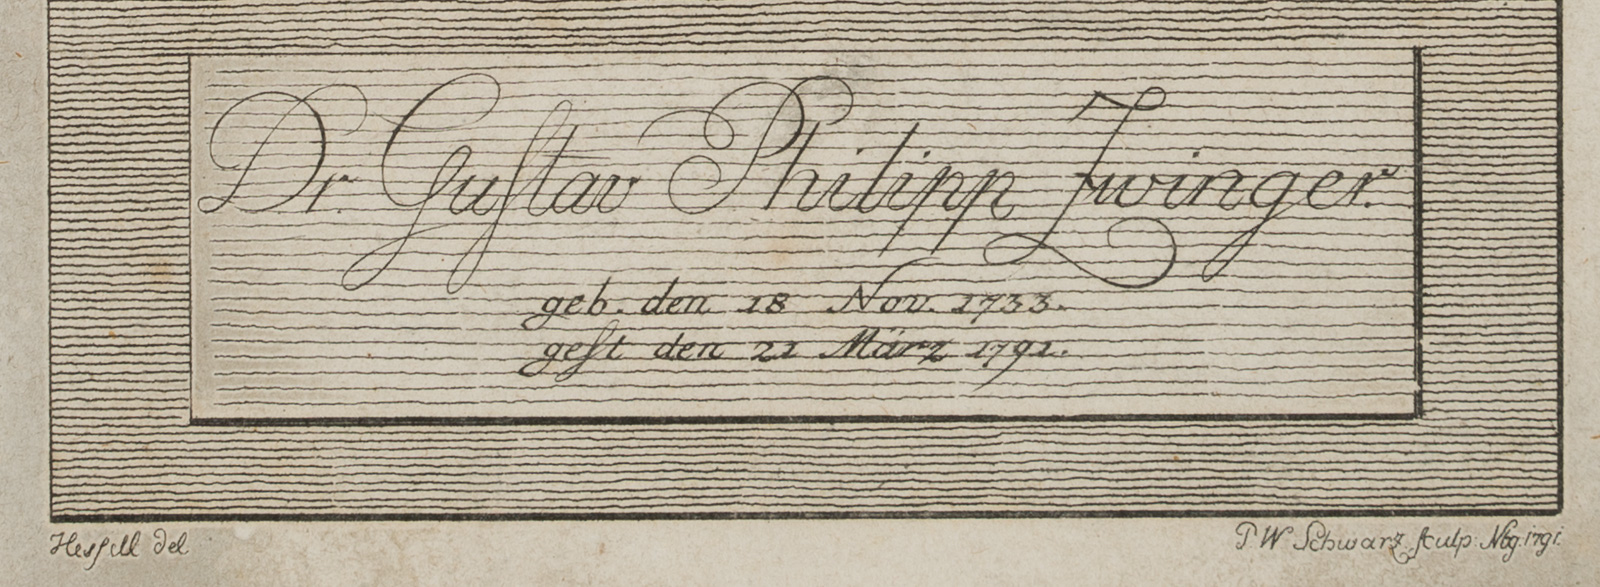 Dr Guſtav Philipp Zwinger.
geb. den 18 Nov. 1733.
geſt den 21 März 1791.
Heſſell del
P W Schwarz ſculp. Nbg. 1791.